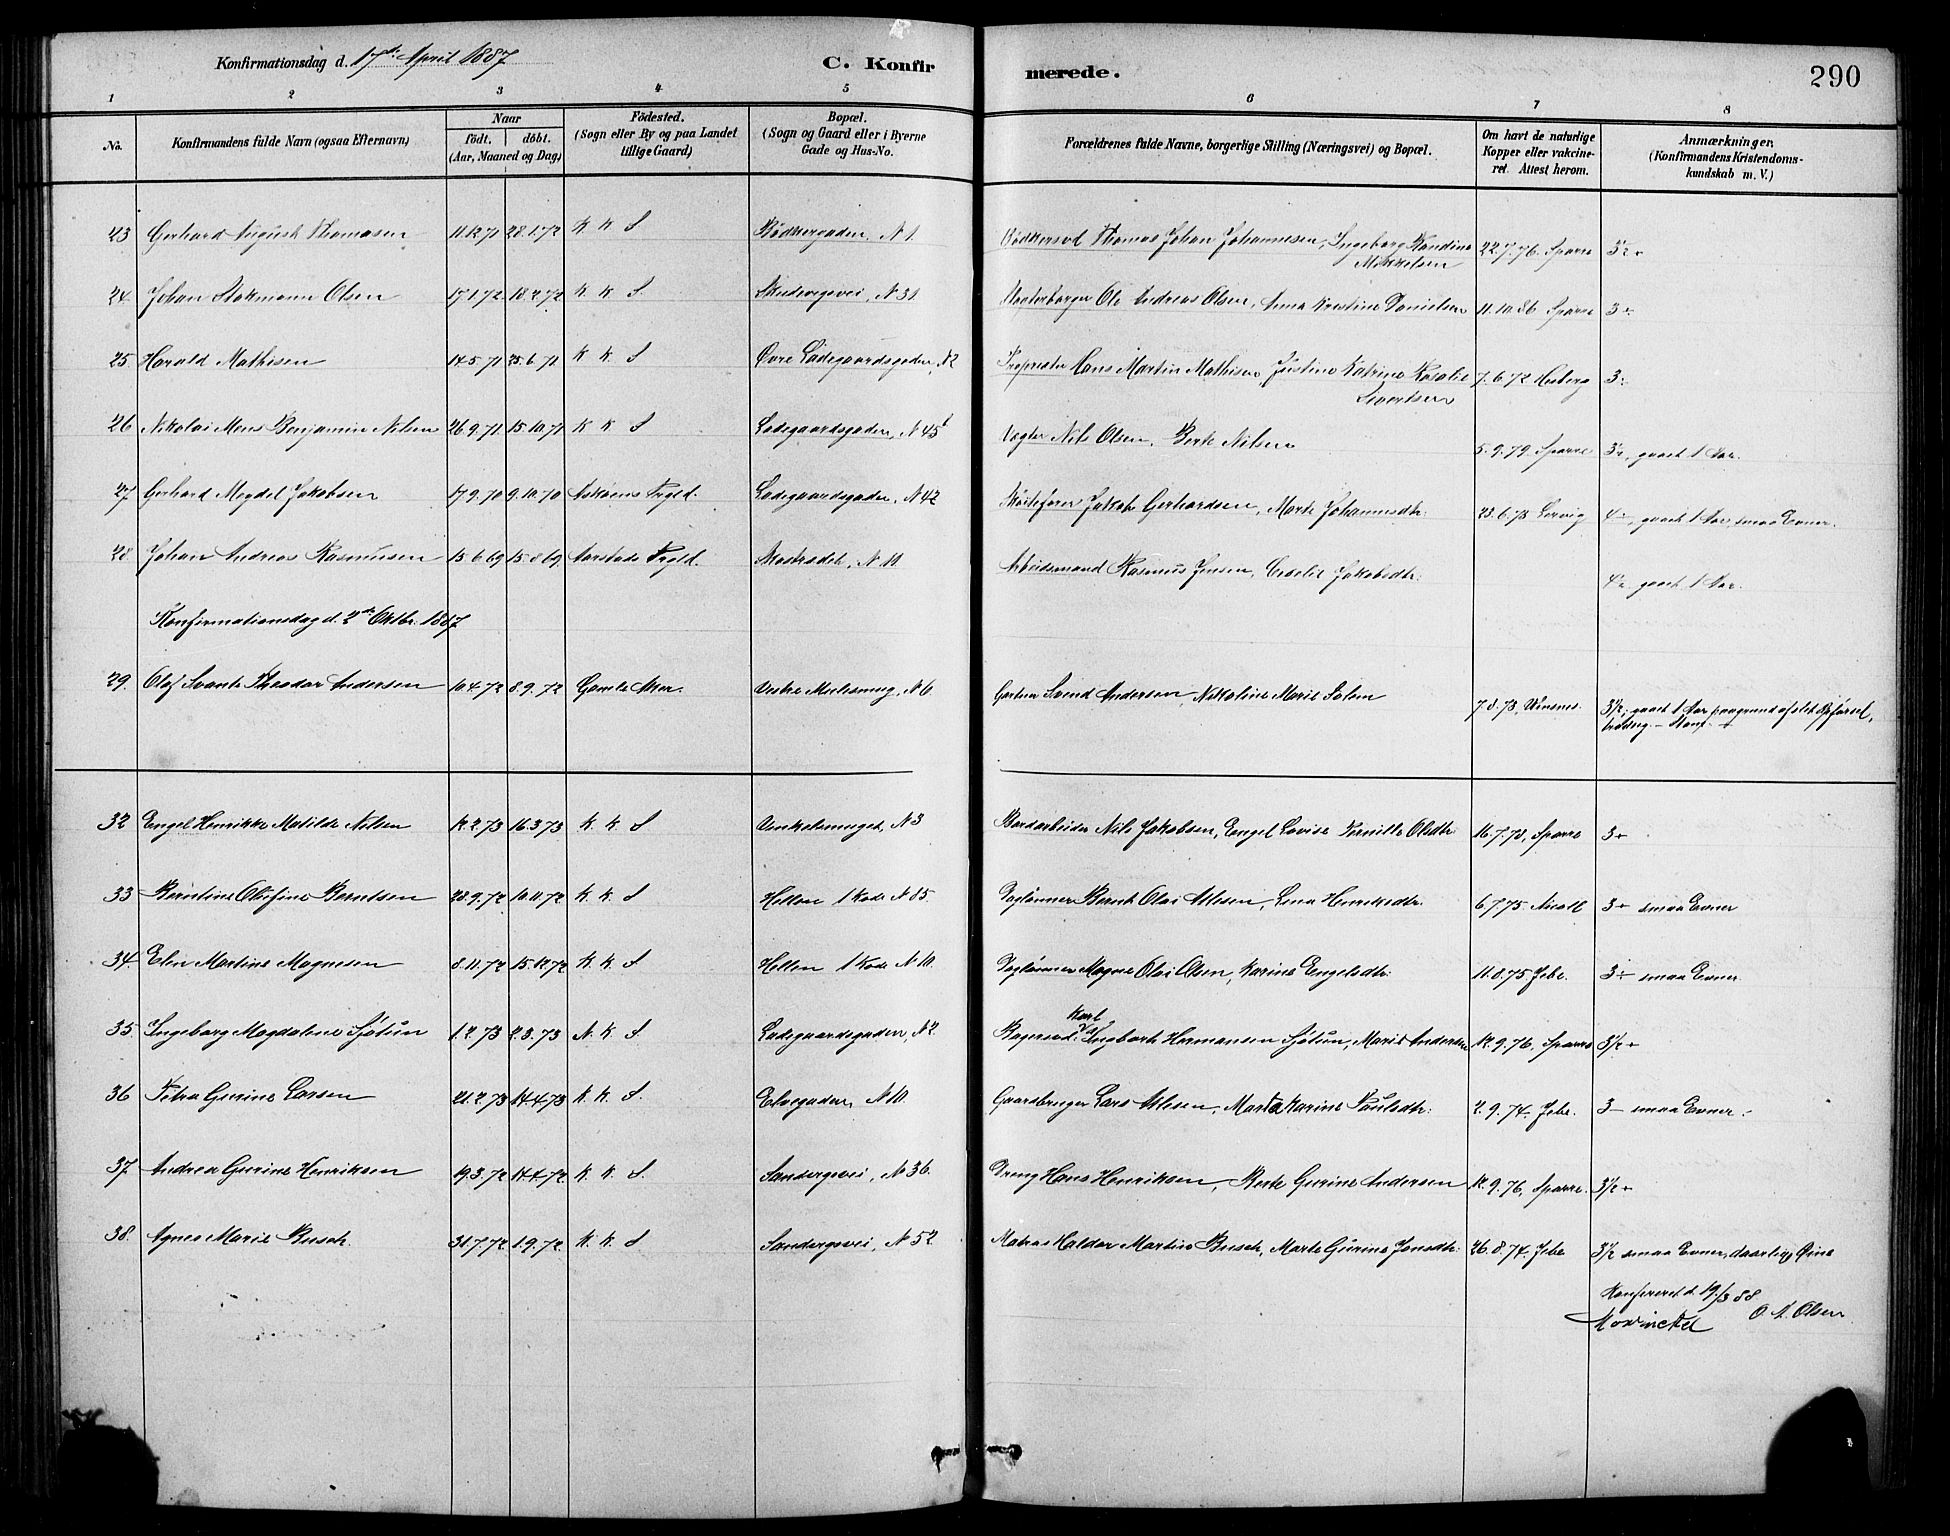 Konfirmationsdag d. 17de April 1887
C. Konfir
merede.
290
1 2 3 4 5 6 7 8
No.
Konfirmandens fulde Navn (ogsaa Efternavn)
Naar
födt. döbt.
(Aar, Maaned og Dag)
Födested.
(Sogn eller By og paa Landet
tillige Gaard)
Bopæl.
(Sogn og Gaard eller i Byerne
Gade og Hus-No.
Forældrenes fulde Navne, borgerlige Stilling (Næringsvei) og Bopæl.
Om havt de naturlige
Kopper eller vakcine-
ret. Attest herom.
Anmærkninger.
(Konfirmandens Kristendoms-
kundskab m. V.)
23 Gerhard August Thomasen 11.12.71 28.1.72 K K S Bödkergaden, N 1. Bödkersvd Thomas Johan Johannesen, Ingeborg Mikkelsen 22.7.76. Sparre 3½ +
24. Johan Stokmann Olsen 17.1.72 18.2.72 K K S. Skudevigsvei, N 31. Ole Andreas Olsen, Anna Kristine Danielsen 11.10.86 Sparre 3 ÷
25. Harald Mathisen 14.5.71 25.6.71. K K. S Øvre Ladegaardsgaden, N 2 Hans Martin Mathisen, Justine Katrine Rosalie Sivertsen 7.6.72 3 ÷
26. Nikolai Mons Benjamin Nilsen 26.9.71. 15.10.71 K K. S Ladegaardsgaden, N 45 b Vægter Nils Olsen, Berte Nilsen 5.9.79. Sparre 3½, gaaet 1 Aar.
27 Gerhard Meydel Jakobsen 17.9.70 9.10.70 Askøens Prgld. Ladegaardsgaden, N 42 Jakob Gerhardsen, Marte Johannesdtr. 23.6.73 Lervig 4 ÷, gaaet 1 Aar, smaa Evner.
28. Johan Andreas Rasmusen 15.6.69 15.8.69 Aarstads Prgld. N 10. Arbeidsmand Rasmus Jensen, Jakobsdtr. 4½ gaaet 1 Aar.
Konfirmationsdag d. 2de Oktbr. 1887
29. Olaf Svante Theodor Andersen 10.4.72 8.9.72 Gamle Aker. N 6. Gartner Svend Andersen, Nikoline Marie Solem 7.8.73, Winsnes. 3½, gaaet 1 Aar paagrund af slet Opførsel,
32 Engel Henrikke Matilde Nilsen 12.2.73 16.3.73 K. K. S Vinkelsmuget, N 3 Bordarbeider Nils Jakobsen, Engel Lovise Pernille Olsdtr. 16.7.73, Sparre 3 +
33 Berntine Olufine Berntsen 28.9.72 10.11.72 K. K. S Hellen 1 Rode N 85. Daglønner Bernt Olai Nilsen, Lena Henriksdtr. 6.7.75 3 + smaa Evner
34. Elen Martine Magnesen 8.11.72 15.12.72 K. K. S Hellen 1 Rode N 10. Daglønner Magne Olai Olsen, Karine Engelsdtr. 11.8.75 Jebe. 3 ÷ smaa Evner.
35. Ingeborg Magdalene Sjötun 1.2.73 2.3.73 N. K. S Ladegaardsgaden, N 2. Bagersvd. Karl Ingbart Hermansen Sjötun, Marie Andersen 12.9.76, Sparre 3½ +
36 Petra Gurine Larsen 21.2.73 14.4.73 K. K. S. Elvegaden, N 10. Gaardbruger Lars Nilsen, Marta Karine Paulsdtr. 2.9.74. Jebe. 3 — smaa Evner.
37. Andrea Gurine Henriksen 19.3.72 14.4.72 K. K. S. Sandvigsvei, N 36. Dreng Hans Henriksen, Berte Gurine Andersen 12.9.76, Sparre. 3½ +
38. Agnes Marie Busch. 31.7.72 1.9.72. K. K. S Sandvigsvei, N 52. Matros Haldor Martin Busch, Marte Gurine Jonsdtr. 26.8.74. Jebe 3½ smaa Evner, daarlig Øine
Konfereret d 19/3 88
Mowinckel O. A. Olsen